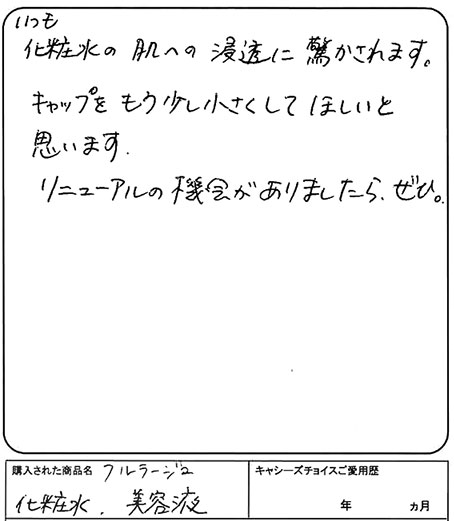 いつも
化粧水の肌への浸透に驚かされます。
キャップをもう少し小さくしてほしいと
思います.
リニューアルの機会がありましたら、ぜひ。
購入された商品名 フルラージュ
化粧水、美容液
キャシーズチョイスご愛用歴
年 ヵ月